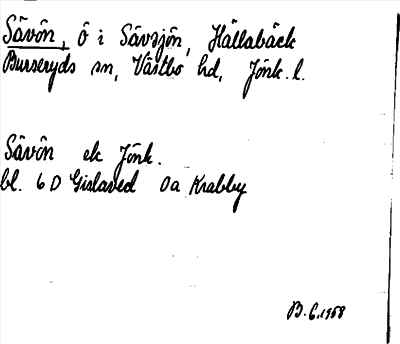 Sävön, ö i Sävsjön, Hällabäck
Burseryds sn, Västbo hd, Jönk. l.
Sävön ek Jönk.
bl. 6 D Gislaved 0a Krabby
B. E. 1958